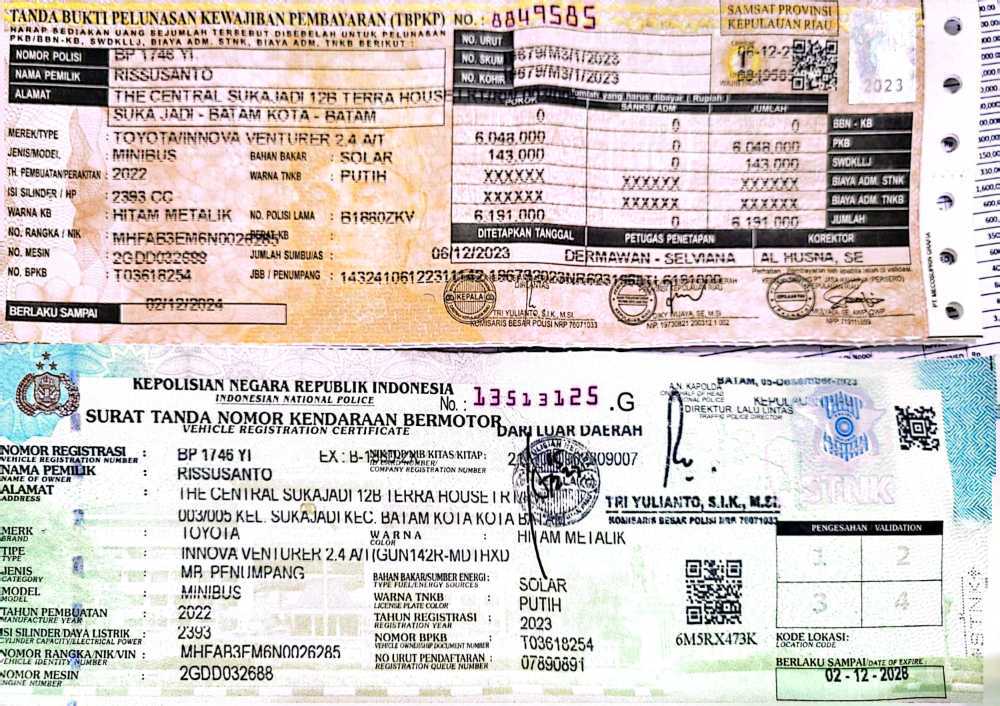 TANDA BUKTI PELUNASAN KEWAJIBAN PEMBAYARAN (TBPKP) NO.: 8849585
HARAP SEDIAKAN UANG SEJUMLAH TERSEBUT DISEBELAH UNTUK PELUNASAN
PKB/BBN-KB, SWDKLLJ, BIAYA ADM. STNK, BIAYA ADM. TNKB BERIKUT :
SAMSAT PROVINSI
KEPULAUAN RIAU
2023
NO. URUT
NO. SKUM 9679/M3/1/2023
NO. KOHIR 9679/M3/1/2023
NOMOR POLISI BP 1746 YI
NAMA PEMILIK RISSUSANTO
ALAMAT THE CENTRAL SUKAJADI 12B TERRA HOUSE
SUKA JADI - BATAM KOTA - BATAM
MEREK/TYPE : TOYOTA/INNOVA VENTURER 2.4 A/T
JENIS/MODEL : MINIBUS BAHAN BAKAR : SOLAR
TH. PEMBUATAN/PERAKITAN : 2022 WARNA TNKB : PUTIH
ISI SILINDER / HP : 2393 CC
WARNA KB : HITAM METALIK NO. POLISI LAMA : B1880ZKV
NO. RANGKA / NIK : MHFAB3EM6N0026285 BERAT KB
NO. MESIN : 2GDD032688 JUMLAH SUMBU/AS :
NO. BPKB : T03618254 JBB / PENUMPANG :
BERLAKU SAMPAI 02/12/2024
POKOK SANKSI ADM JUMLAH
0 0 0 BBN - KB
6.048.000 0 6.048.000 PKB
143.000 0 143.000 SWDKLLJ
XXXXXX XXXXXX XXXXXX BIAYA ADM. STNK
XXXXXX XXXXXX XXXXXX BIAYA ADM. TNKB
6.191.000 0 6.191.000 JUMLAH
DITETAPKAN TANGGAL PETUGAS PENETAPAN KOREKTOR
06/12/2023 DERMAWAN - SELVIANA AL HUSNA, SE
KEPALA
TRI YULIANTO, S.I.K, M.SI.
KOMISARIS BESAR POLISI NRP 76071033
NIP. 19730821 200312 1 002
KEPOLISIAN NEGARA REPUBLIK INDONESIA
INDONESIAN NATIONAL POLICE
No. : 13513125 .G
SURAT TANDA NOMOR KENDARAAN BERMOTOR
VEHICLE REGISTRATION CERTIFICATE
DARI LUAR DAERAH
A.N. KAPOLDA KEPULAUAN
ON BEHALF OF HEAD
DIREKTUR LALU LINTAS
TRAFFIC POLICE DIRECTOR
STNK
TRI YULIANTO, S.I.K, M.SI.
KOMISARIS BESAR POLISI NRP 76071033
NOMOR REGISTRASI : BP 1746 YI
VEHICLE REGISTRATION NUMBER
NAMA PEMILIK : RISSUSANTO
NAME OF OWNER
COMPANY REGISTRATION NUMBER
ALAMAT : THE CENTRAL SUKAJADI 12B TERRA HOUSE
ADDRESS
003/005 KEL. SUKAJADI KEC. BATAM KOTA KOTA
MERK : TOYOTA WARNA : HITAM METALIK
BRAND COLOR
TIPE : INNOVA VENTURER 2.4 A/T (GUN142R-MDTHXD
TYPE
JENIS : MB. PENUMPANG
CATEGORY
MODEL : MINIBUS
MODEL
TAHUN PEMBUATAN : 2022
MANUFACTURE YEAR
ISI SILINDER/DAYA LISTRIK : 2393
CYLINDER CAPACITY/ELECTRICAL POWER
NOMOR RANGKA/NIK/VIN : MHFAB3EM6N0026285
VEHICLE IDENTITY NUMBER
NOMOR MESIN : 2GDD032688
ENGINE NUMBER
BAHAN BAKAR/SUMBER ENERGI : SOLAR
TYPE FUEL/ENERGY SOURCES
WARNA TNKB : PUTIH
LICENSE PLATE COLOR
TAHUN REGISTRASI : 2023
REGISTRATION YEAR
NOMOR BPKB : T03618254
VEHICLE OWNERSHIP DOCUMENT NUMBER
NO URUT PENDAFTARAN : 07890891
REGISTRATION QUEUE NUMBER
6M5RX473K
PENGESAHAN / VALIDATION
1 2
3 4
KODE LOKASI:
BERLAKU SAMPAI/DATE OF EXPIRE :
02 - 12 - 2028